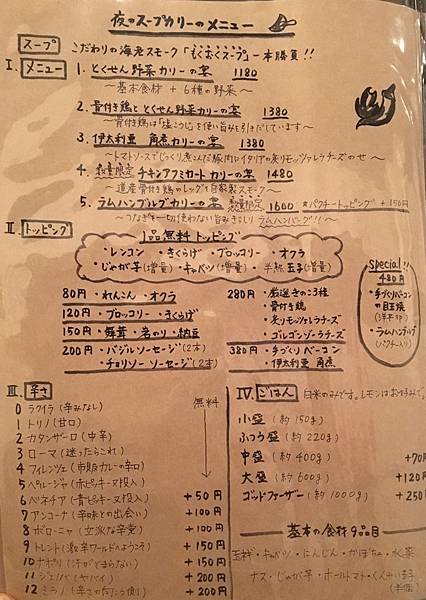 夜のスープカリーのメニュー
スープ こだわりの海老スモーク「もくもくスープ」一本勝負!!
I. メニュー 1. とくせん野菜カリーの宴 1180
〜基本食材 + 6種の野菜〜
2. 骨付き鶏ととくせん野菜カリーの宴 1380
〜骨付き鶏は「塩こうじ」を使い旨みを引きだしています〜
3. 伊太利亜 角煮カリーの宴 1380
〜トマトソースでじっくり煮こんだ豚肉にイタリアの炙りモッツァレラチーズのせ〜
4. 数量限定 チキンアフミカートカリーの宴 1480
〜道産骨付き鶏のレッグを自家製スモーク〜
5. ラムハンブルグカリーの宴 数量限定 1600 *パクチートッピング +150円
〜つなぎを一切使わない旨みぎっしりラムハンバーグ!!〜
II トッピング
1品無料トッピング
・レンコン ・きくらげ ・ブロッコリー ・オクラ
・じゃが芋(増量)・キャベツ(増量)・半熟玉子(増量)
80円・れんこん・オクラ
120円・ブロッコリー・きくらげ
150円・舞茸・岩のり・納豆
200円・バジルソーセージ(2本)
・チョリソーソーセージ(2本)
280円・厳選きのこ3種
・骨付き鶏
・炙りモッツァレラチーズ
・ゴルゴンゾーラチーズ
380円・手づくりベーコン
・伊太利亜 角煮
special!!
480円
・手づくりベーコンの目玉焼
・ラムハンブルグ
(パクチー入り)
III. 辛さ 無料
0 ラクイラ(辛みなし)
1 トリノ(甘口)
2 カタンザーロ(中辛)
3 ローマ(迷ったらこれ)
4 フィレンツェ(市販カレーの辛口)
5 ペルージャ(赤ピッキーヌ投入)
6 ベネチア(青ピッキーヌ投入) +50円
7 アンコーナ(辛味との出会い) +100円
8 ボローニャ(立派な辛党) +100円
9 トレント(激辛ワールドへようこそ) +150円
10 ナポリ(汗がとまらない) +150円
11 ジェノバ(ヤバイ) +200円
12 ミラノ(辛さの向こう側) +200円
IV. ごはん 白米のみです。レモンはお好みで。
小盛(約150g)
ふつう盛(約220g)
中盛(約400g) +70円
大盛(約600g) +120円
ゴッドファーザー(約1000g) +250
基本の食材9品目
玉ネギ・キャベツ・にんじん・かぼちゃ・水菜
ナス・じゃが芋・ホールトマト・くんせい玉子
(半個)